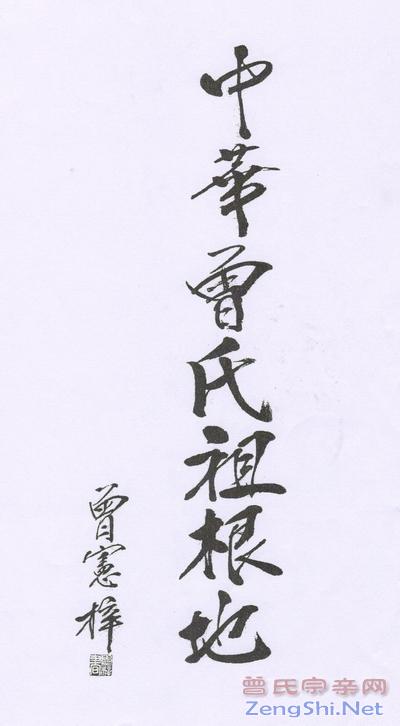 中華曾氏祖根地
曾憲梓
曾氏宗亲网
ZengShi.Net